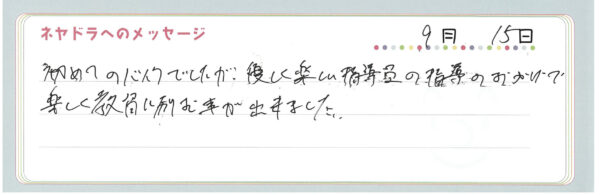 ネヤドラへのメッセージ
9月 15日
初めてのバイクでしたが、優しく楽しい指導員の指導のおかげで
楽しく教習に励む事が出来ました。